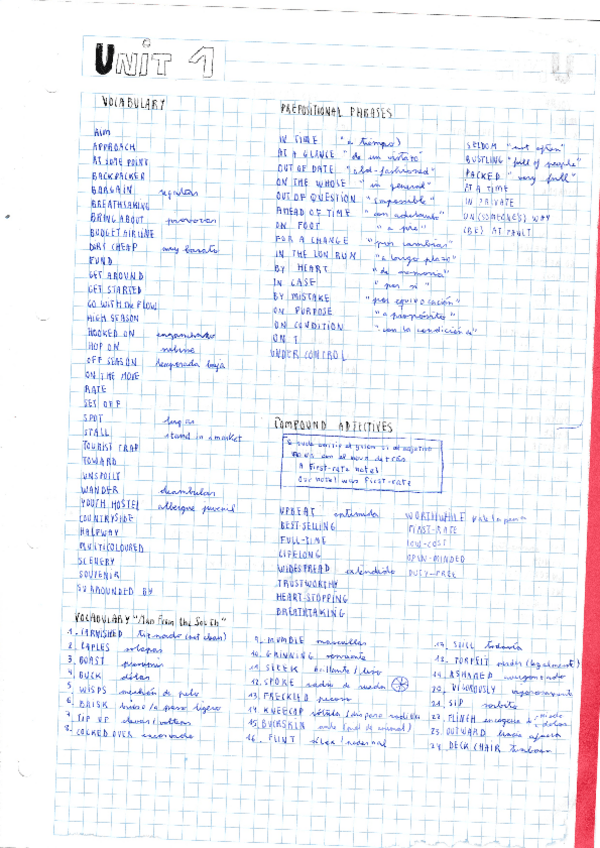 UNIT 1
VOCABULARY
AIM
APPROACH
AT SOME POINT
BACKPACKER
BARGAIN regatear
BREATHTAKING
BRING ABOUT provocar
BUDGET AIRLINE
DIRT CHEAP muy barato
FUND
GET AROUND
GET STARTED
GO WITH THE FLOW
HIGH SEASON
HOOKED ON enganchado
HOP ON
OFF SEASON temporada baja
ON THE MOVE
RATE
SET OFF
SPOT lugar
STALL stand in a market
TOURIST TRAP
TOWARD
UNSPOILT
WANDER deambular
YOUTH HOSTEL albergue juvenil
COUNTRYSIDE
HALFWAY
MULTICOLOURED
SCENERY
SOUVENIR
SURROUNDED BY
PREPOSITIONAL PHRASES
IN TIME "a tiempo"
AT A GLANCE "de un vistazo"
OUT OF DATE "old-fashioned"
ON THE WHOLE "in general"
OUT OF QUESTION "impossible"
AHEAD OF TIME "con adelanto"
ON FOOT "a pie"
FOR A CHANGE "por cambiar"
IN THE LON RUN "a largo plazo"
BY HEART "de memoria"
IN CASE "por si"
BY MISTAKE "por equivocación"
ON PURPOSE "a propósito"
ON CONDITION "con la condición de"
ON T
UNDER CONTROL
SELDOM "not often"
BUSTLING "full of people"
PACKED "very full"
AT A TIME
IN PRIVATE
ON (SOMEONE'S) WAY
(BE) AT FAULT
COMPOUND ADJECTIVES
A First-rate hotel
Our hotel was First-rate
UPBEAT optimista
BEST-SELLING
FULL-TIME
LIFELONG
WIDESPREAD extendido
TRUSTWORTHY
HEART-STOPPING
BREATHTAKING
WORTHWHILE vale la pena
FIRST-RATE
LOW-COST
OPEN-MINDED
DUTY-FREE
VOCABULARY "Man From the South"
1. TARNISHED
2. LAPELS solapas
3. BOAST presumir
4. BUCK dólar
5. WISPS mechón de pelo
6. BRISK paso ligero
7. TIP UP
8. COCKED OVER
9. MUMBLE
10. GRINNING sonriente
11. SLEEK
12. SPOKE radio de rueda
13. FRECKLED pecoso
14. KNEECAP rótula
15. BUCKSKIN
16. FLINT
17. STILL todavía
18. FORFEIT
19. ASHAMED avergonzado
20. VIGOROUSLY vigorosamente
21. SIP sorbito
22. FLINCH encogerse
23. OUTWARD hacia afuera
24. DECK CHAIR tumbona